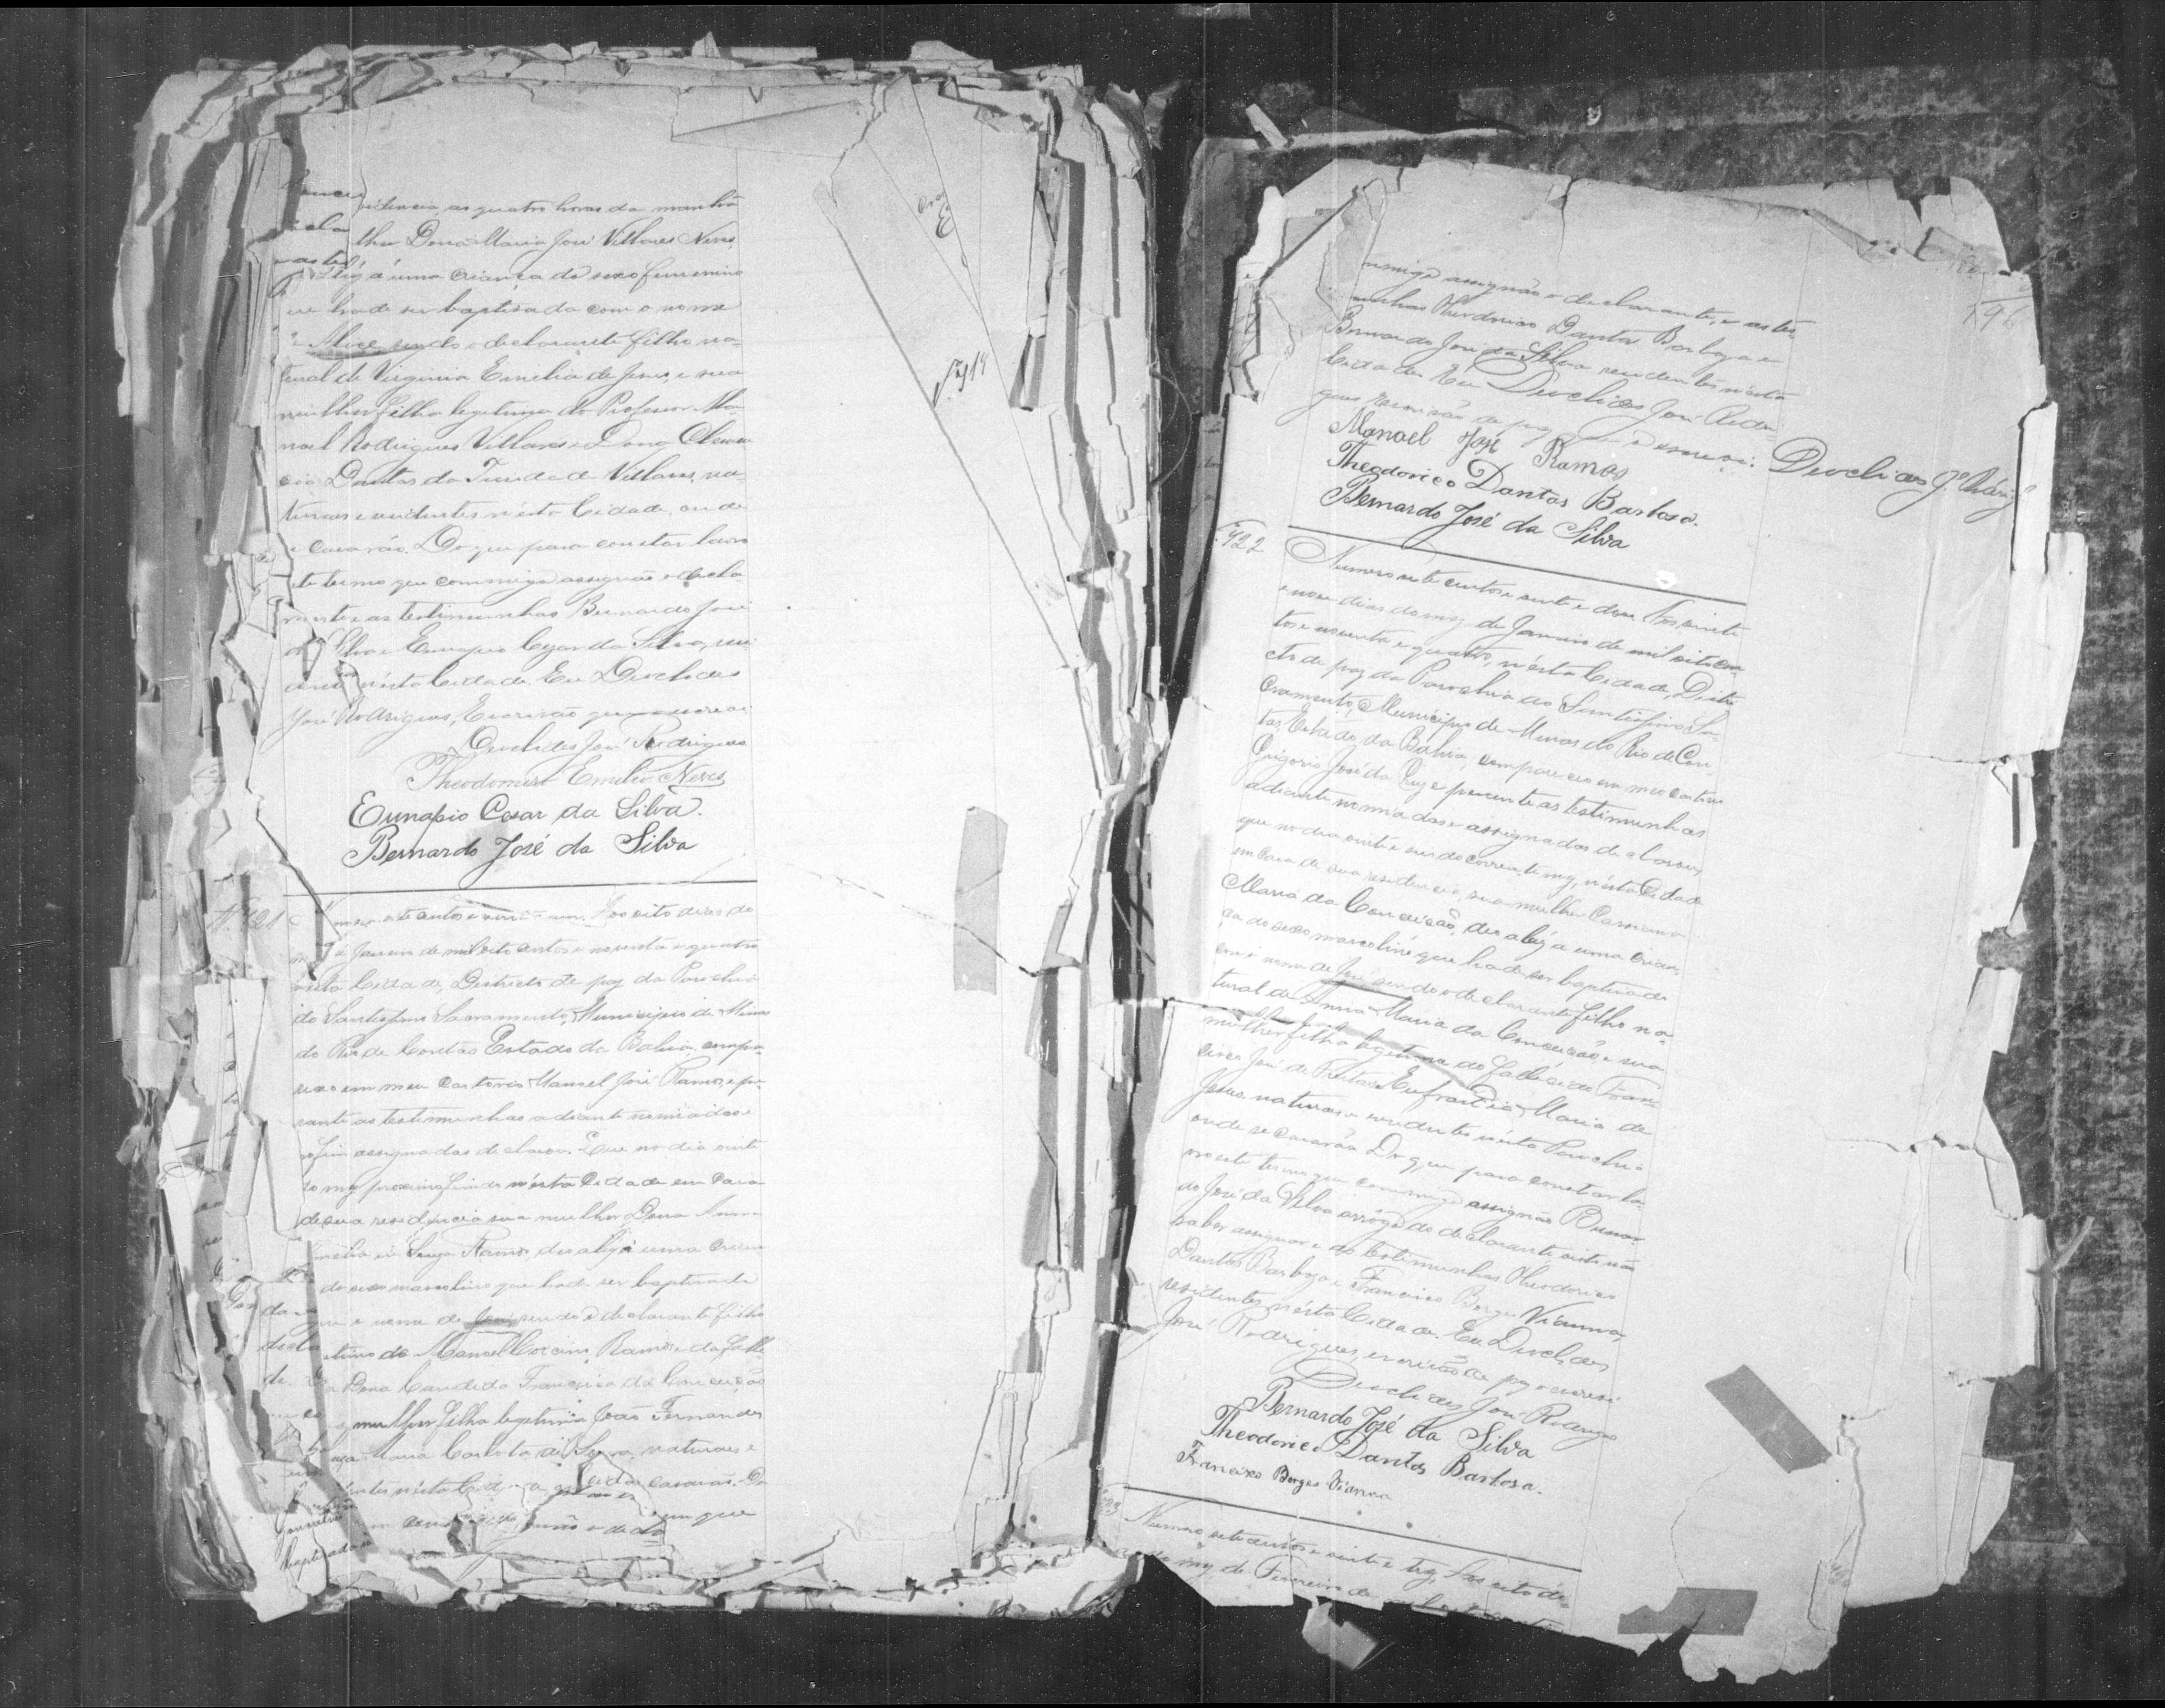 sidencia, as quatro horas da manhã
lher Dona Maria José Villares Neves,
luz á uma criança do sexo femenino
que hade ser baptisada com o nome
de Alice, sendo o declarante filho na-
tural de Virginia Emilia de Jesus, e sua
mulher filha legitima do Professor Ma-
noel Rodrigues Villares e Dona Clemen
cia Dantas da Trindade Villares, na-
turaes e residentes nésta Cidade, onde
se casarão. Do que para constar lavro
este termo que commigo assignão o decla
rante e as testimunhas Bernardo José
da Silva e Eunapio Cezar da Silva, resi
dentes nésta Cidade. Eu Deoclides
José Rodrigues, Escrivão que o escrevi
Deoclides José Rodrigues
Theodomiro Emilio Neves
Eunapio Cesar da Silva.
Bernardo José da Silva
Nº 721
Numero sete centos e vinte e um. Aos oito dias do
mez de Janeiro de mil oito centos e noventa e quatro
nésta Cidade, Districto de paz da Parochia
do Santissimo Sacramento, Municipio de Minas
do Rio de Contas Estado da Bahia, compa-
receo em meu Cartorio Manoel José Ramos, e pe-
rante as testimunhas adiante nomiadas e
no fim assignadas declarou: Que no dia vinte
do mez proximo findo nésta Cidade em Casa
de sua residencia sua mulher Dona Anna
Amelia de Souza Ramos, deo a luz á uma crian
do sexo mascolino que hade ser baptisada
com o nome de José, sendo o declarante filho
legitimo de Manoel Ramos e da falle
cida Dona Candida Francisca da Conceição
e sua mulher filha legitima João Fernandes
Maria Carlota de Souza, naturaes e
residentes nésta Cidade onde casarão. Do
que
Nº 719
196
commigo assignão o declarante, e as tes-
timunhas Theodorico Dantas Barboza e
Bernardo José da Silva residentes nésta
Cidade. Eu Deoclides José Rodri-
gues Escrivão de paz que o escrevi. Deoclides Jé. Rodrigs
Manoel José Ramos
Theodorico Dantas Barbosa.
Bernardo José da Silva
722
Numero sete centos e vinte e dous. Aos vinte
e nove dias do mez de Janeiro de mil oito cen-
tos e noventa e quatro, nésta Cidade, Distri-
cto de paz da Parochia do Santissimo Sa-
cramento, Municipio de Minas do Rio de Con-
tas, Estado da Bahia, compareceo em meu Cartorio
Grigorio José da Cruz e perante as testimunhas
adiante nomiadas e assignadas declarou:
que no dia vinte e seis do corrente mez, nésta Cidade
em Casa de sua residencia, sua mulher
Maria da Conceição, deo a luz á uma crian-
ça do sexo mascolino que hade ser baptisada
com o nome de José, sendo o declarante filho na-
tural de Anna Maria da Conceição e sua
mulher filha legitima do fallecido Fran-
cisco José de Freitas e Eufrasia Maria de
Jesus, naturaes e residentes nésta Parochia
onde se casarão. Do que para constar la-
vro este termo que commigo assignão Bernar-
do José da Silva arrogo do declarante visto não
saber assignar e as testimunhas Theodorico
Dantas Barboza e Francisco Borges Vianna,
residentes nésta Cidade. Eu Deoclides
José Rodrigues, escrivão de paz o escrevi.
Deoclides José Rodrigues
Bernardo José da Silva
Theodorico Dantas Barbosa.
Francisco Borges Vianna
723
Numero sete centos e vinte e trez. Aos oito di-
as do mez de Fevereiro de